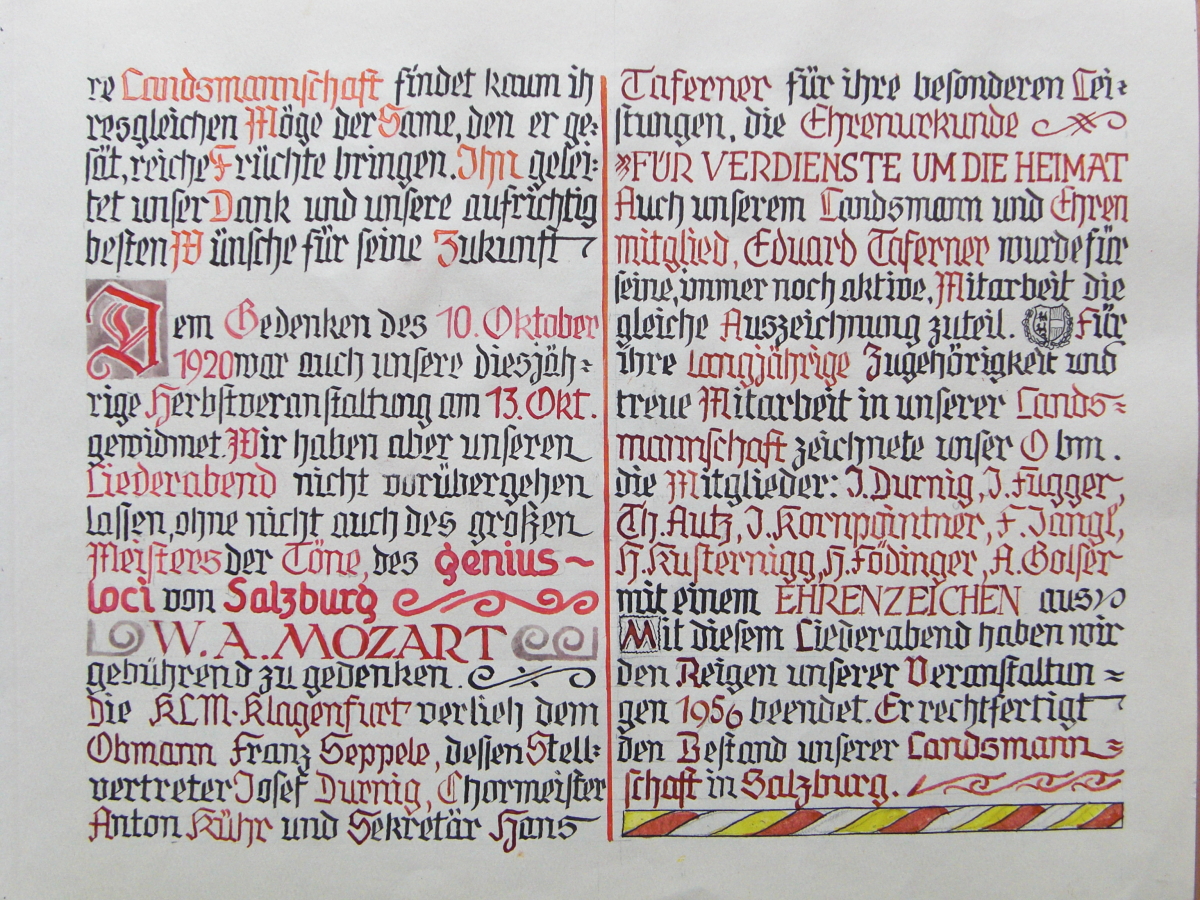 re Landsmannschaft findet kaum ih
resgleichen Möge der Same, den er ge=
sät, reiche Früchte bringen. Ihn gelei=
tet unser Dank und unsere aufrichtig
besten Wünsche für seine Zukunft
Dem Gedenken des 10. Oktober
1920 war auch unsere diesjäh=
rige Herbstveranstaltung am 13. Okt.
gewidmet. Wir haben aber unseren
Liederabend nicht vorübergehen
lassen, ohne nicht auch des großen
Meisters der Töne, des genius~
loci von Salzburg
W. A. MOZART
gebührend zu gedenken.
Die KLM-Klagenfurt verlieh dem
Obmann Franz Seppele, dessen Stell=
vertreter Josef Durnig, Chormeister
Anton Kühr und Sekretär Hans
Taferner für ihre besonderen Lei=
stungen, die Ehrenurkunde
»FÜR VERDIENSTE UM DIE HEIMAT
Auch unserem Landsmann und Ehren
mitglied, Eduard Taferner wurde für
seine, immer noch aktive, Mitarbeit die
gleiche Auszeichnung zuteil. Für
ihre langjährige Zugehörigkeit und
treue Mitarbeit in unserer Lands=
mannschaft zeichnete unser Obm.
die Mitglieder: J. Durnig, J. Fugger,
Th. Autz, J. Kornpointner, F. Jangl,
H. Kusternigg, H. Födinger, A. Golser
mit einem EHRENZEICHEN aus
Mit diesem Liederabend haben wir
den Reigen unserer Veranstaltun=
gen 1956 beendet. Er rechtfertigt
den Bestand unserer Landsmann=
schaft in Salzburg.